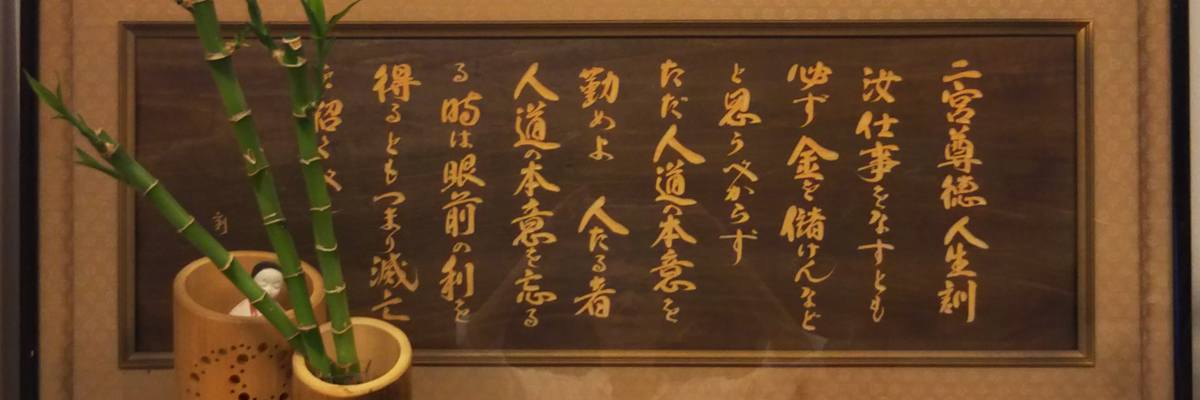 二宮尊徳人生訓
汝仕事をなすとも
必ず金を儲けんなど
と思うべからず
ただ人道の本意を
勤めよ 人たる者
人道の本意を忘る
る時は眼前の利を
得るともつまり滅亡
を招くべ